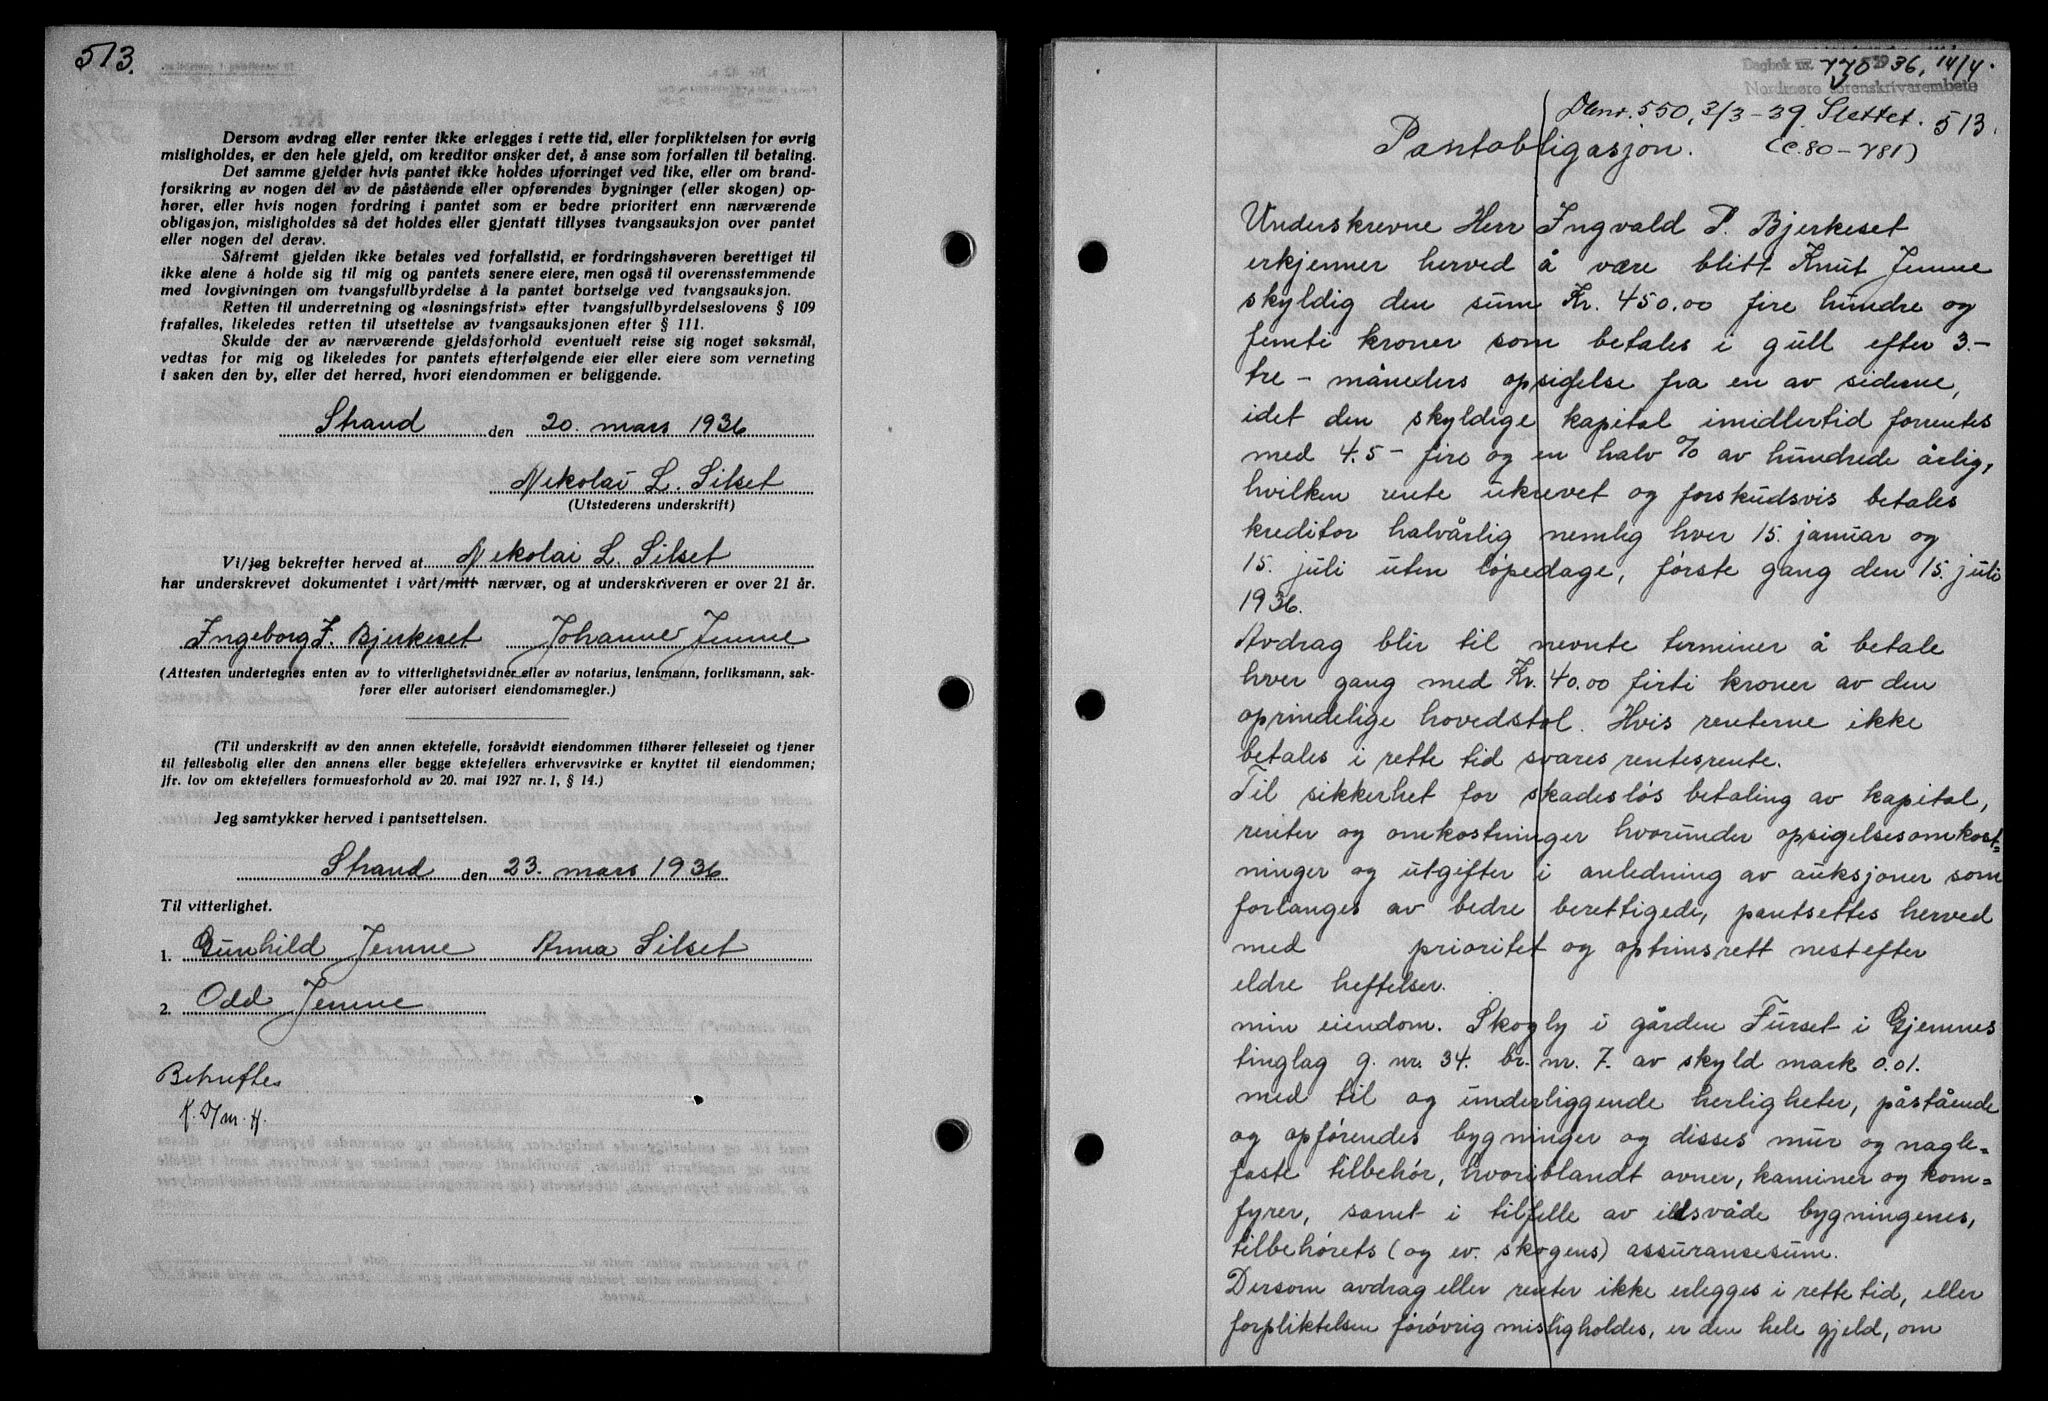 513.
Dersom avdrag eller renter ikke erlegges i rette tid, eller forpliktelsen for øvrig
misligholdes, er den hele gjeld, om kreditor ønsker det, å anse som forfallen til betaling.
Det samme gjelder hvis pantet ikke holdes uforringet ved like, eller om brand-
forsikring av nogen del av de påstående eller opførendes bygninger (eller skogen) op-
hører, eller hvis nogen fordring i pantet som er bedre prioritert enn nærværende
obligasjon, misligholdes så det holdes eller gjentatt tillyses tvangsauksjon over pantet
eller nogen del derav.
Såfremt gjelden ikke betales ved forfallstid, er fordringshaveren berettiget til
ikke alene å holde sig til mig og pantets senere eiere, men også til overensstemmende
med lovgivningen om tvangsfullbyrdelse å la pantet bortselge ved tvangsauksjon.
Retten til underretning og «løsningsfrist» efter tvangsfullbyrdelseslovens § 109
frafalles, likeledes retten til utsettelse av tvangsauksjonen efter § 111.
Skulde der av nærværende gjeldsforhold eventuelt reise sig noget søksmål,
vedtas for mig og likeledes for pantets efterfølgende eier eller eiere som verneting
i saken den by, eller det herred, hvori eiendommen er beliggende.
Strand den 20. mars 1936
Nikolai L. Silset
(Utstederens underskrift)
Vi/jeg bekrefter herved at Nikolai L. Silset
har underskrevet dokumentet i vårt/mitt nærvær, og at underskriveren er over 21 år.
Ingeborg I. Bjerkeset Johanne Jenne
(Attesten undertegnes enten av to vitterlighetsvidner eller av notarius, lensmann, forliksmann, sak-
fører eller autorisert eiendomsmegler.)
(Til underskrift av den annen ektefelle, forsåvidt eiendommen tilhører felleseiet og tjener
til fellesbolig eller den annens eller begge ektefellers erhvervsvirke er knyttet til eiendommen;
jfr. lov om ektefellers formuesforhold av 20. mai 1927 nr. 1, § 14.)
Jeg samtykker herved i pantsettelsen.
Strand den 23. mars 1936
Til vitterlighet.
1. Gunhild Jenne Anna Silset
2. Odd Jenne
Bekreftes
Dagbok nr. 770 1936, 14/4.
Nordmøre sorenskrivarembete
Dbnr. 550, 3/3-39. Slettet. 513.
Pantobligasjon. (C.80-781)
Underskrevne Herr Ingvald P. Bjerkeset
erkjenner herved å være blitt Knut Jenne
skyldig den sum Kr. 450.00 fire hundre og
femti kroner som betales i gull efter 3.-
tre - måneders opsigelse fra en av siderne,
idet den skyldige kapital imidlertid forrentes
med 4.5 - fire og en halv % av hundrede årlig,
hvilken rente ukrevet og forskudsvis betales
kreditor halvårlig nemlig hver 15. januar og
15. juli uten løpedage, første gang den 15. juli
1936.
Avdrag blir til nevnte terminer å betale
hver gang med Kr. 40.00 firti kroner av den
oprindelige hovedstol. Hvis renterne ikke
betales i rette tid svares rentesrente.
Til sikkerhet for skadesløs betaling av kapital,
renter og omkostninger hvorunder opsigelsesomkost=
ninger og utgifter i anledning av auksjoner som
forlanges av bedre berettigede, pantsettes herved
med prioritet og optrinsrett nest efter
eldre heftelser.
min eiendom. Skogly i gården Furset i Gjemnes
tinglag g. nr. 34. br. nr. 7. av skyld mark 0.01.
med til og underliggende herligheter, påstående
og opførendes bygninger og disses mur og nagle=
faste tilbehør, hvoriblandt ovner, kaminer og kom=
fyrer, samt i tilfelle av ildsvåde bygningenes,
tilbehørets (og ev. skogens) assuransesum.
Dersom avdrag eller renter ikke erlegges i rette tid, eller
forpliktelsen forøvrig misligholdes, er den hele gjeld, om